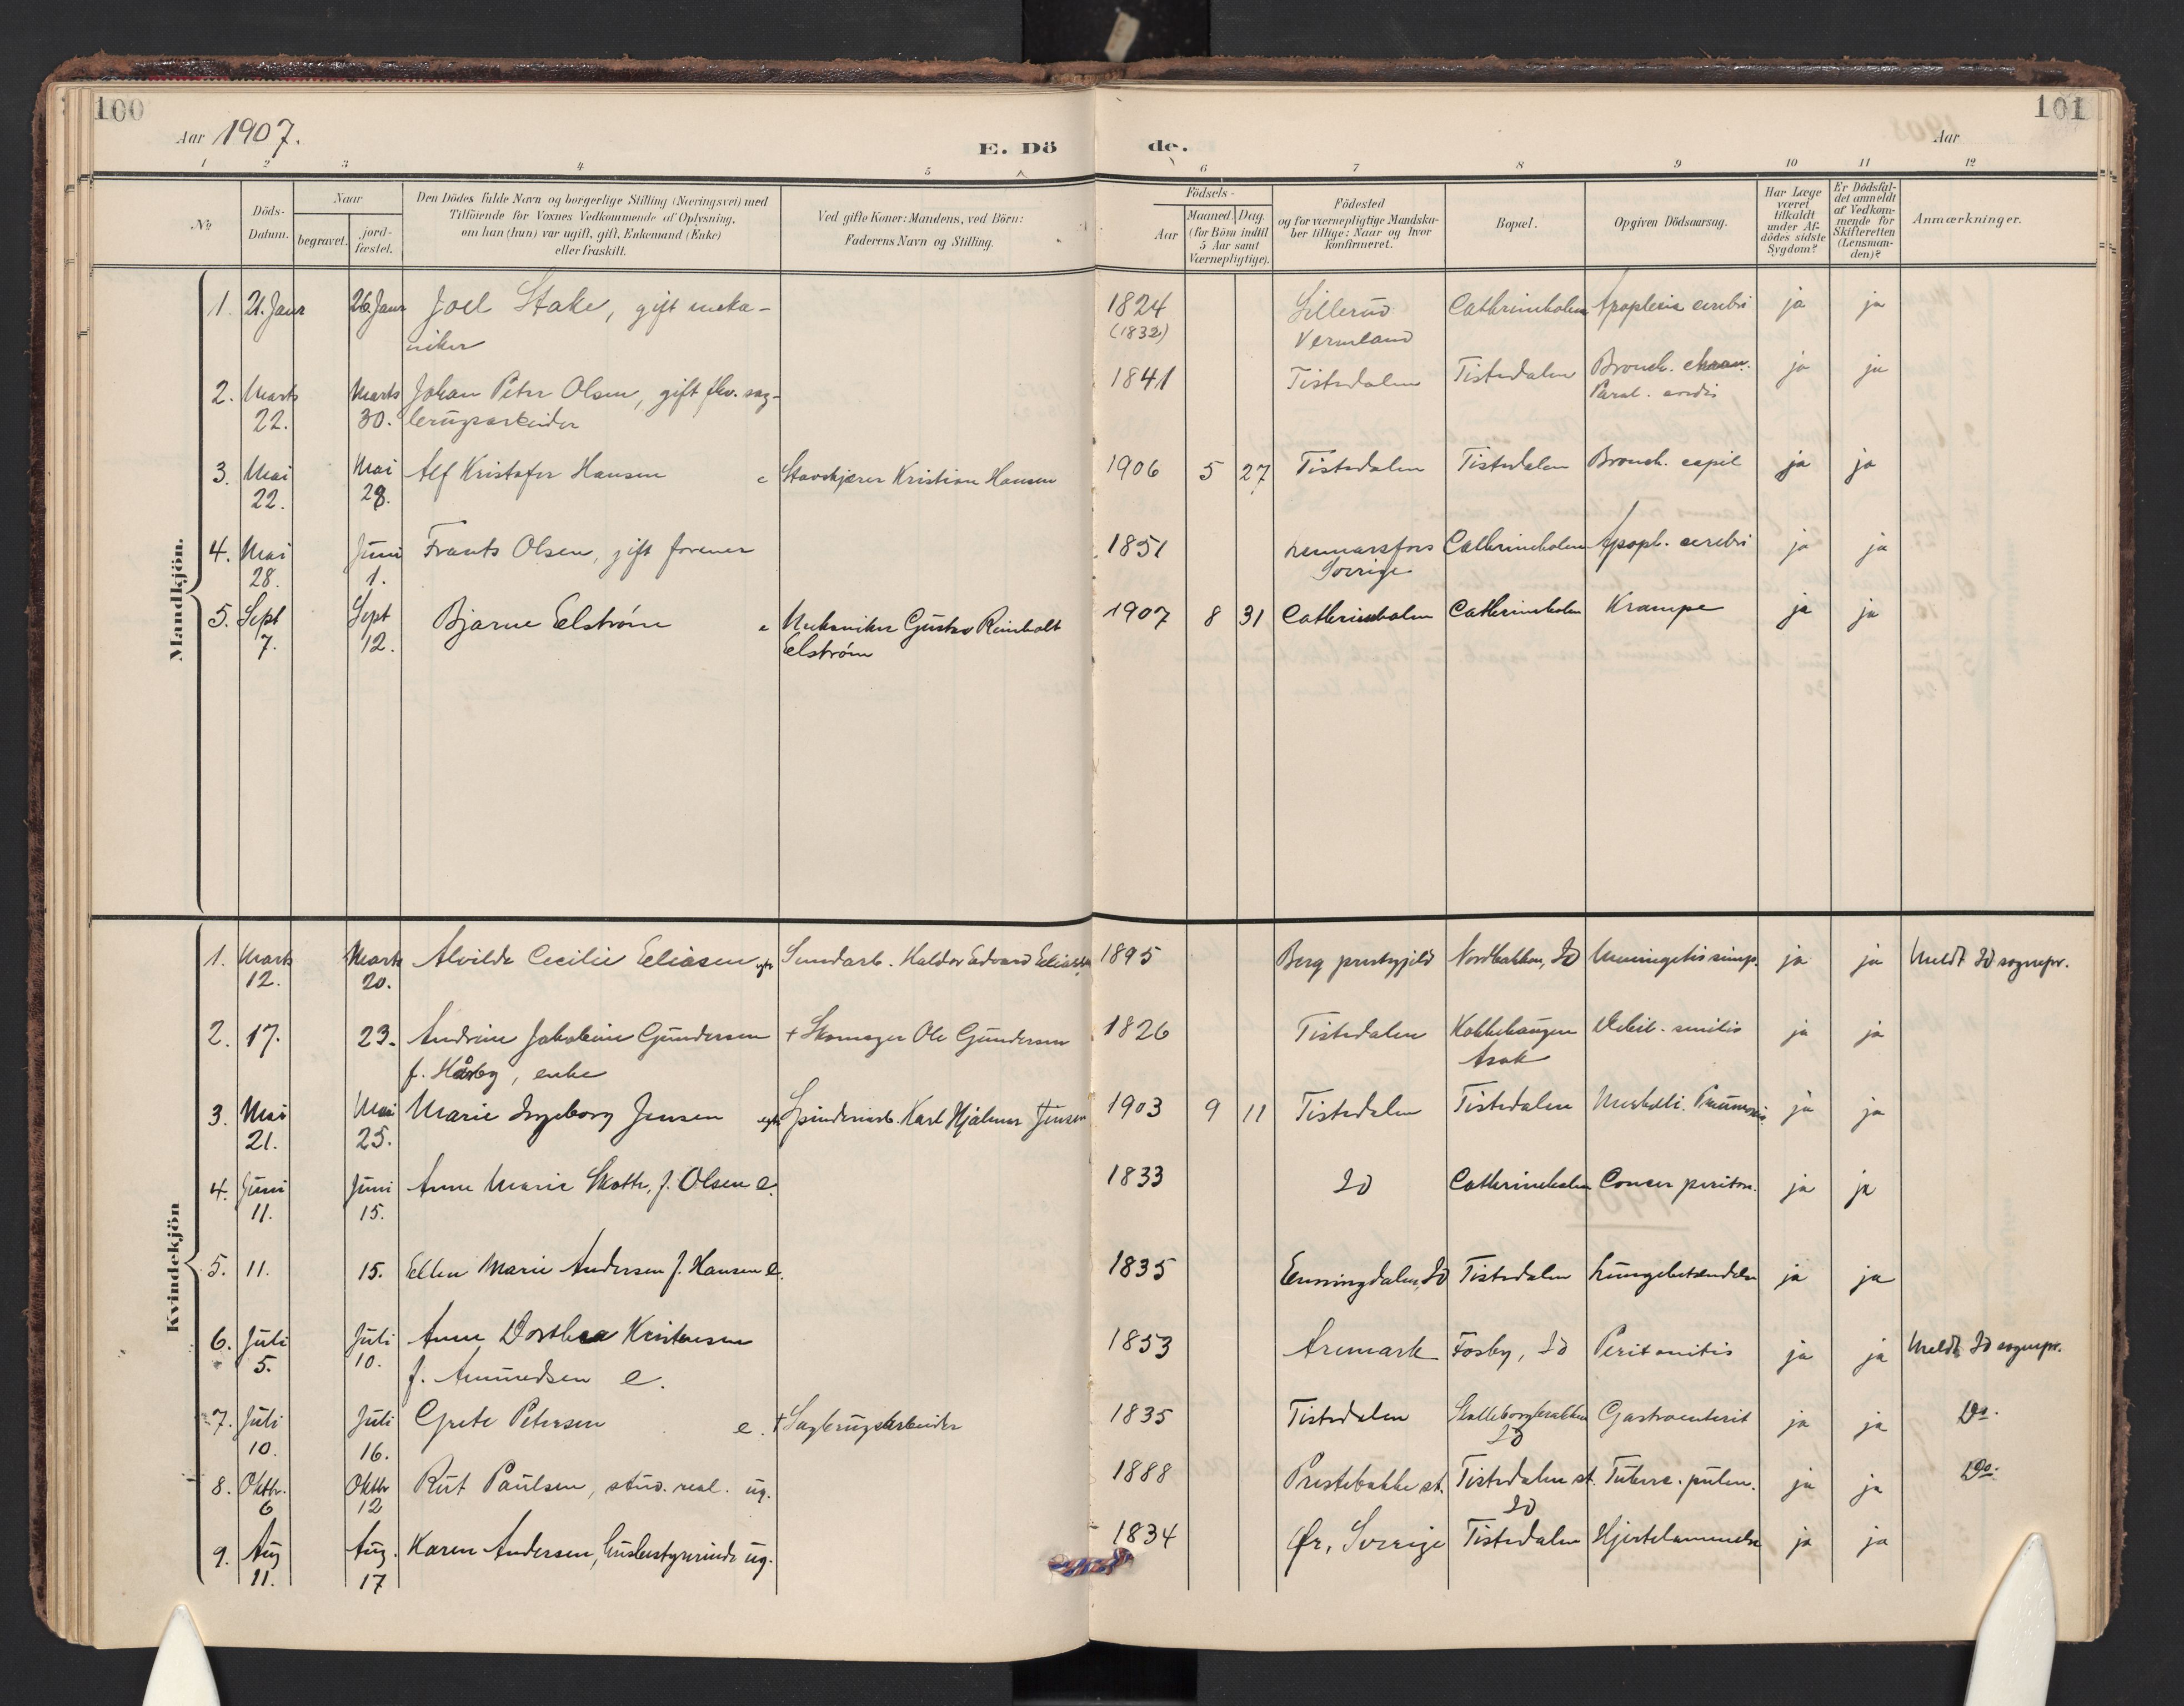 100
101
Aar 1907.
E. Döde.
Aar
1 2 3 4 5 6 7 8 9 10 11 12
No
Döds-Datum.
Naar
begravet.
jord-fæstet.
Den Dödes fulde Navn og borgerlige Stilling (Næringsvei) med
Tilföiende for Voxnes Vedkommende af Oplysning,
om han (hun) var ugift, gift, Enkemand (Enke)
eller fraskilt.
Ved gifte Koner: Mandens, ved Börn:
Faderens Navn og Stilling.
Födsels-
Aar
Maaned. Dag.
(for Börn indtil
5 Aar samt
Værnepligtige).
Födested
og for værnepligtige Mandska-
ber tillige: Naar og hvor
konfirmeret.
Bopæl.
Opgiven Dödsaarsag.
Har Læge
været
tilkaldt
under Af-
dödes sidste
Sygdom?
Er Dödsfal-
det anmeldt
af Vedkom-
mende for
Skifteretten
(Lensman-
den)?
Anmærkninger.
Mandkjön.
1. 21. Janr 26 Janr Joel Stake, gift meka- 1824 Sillerud Cathrineholm Apoplexia cerebri ja ja
niker (1832) Vermland
2. Marts Marts Johan Peter Olsen, gift fhv. sag- 1841 Tistedalen Tistedalen Bronch. ja ja
22. 30. brugsarbeider Paral. cordis
3. Mai Mai Alf Kristofer Hansen e Kristian Hansen 1906 5 27 Tistedalen Tistedalen Bronch. capil ja ja
22. 28.
4. Mai Juni Frants Olsen, gift former 1851 Lennarsfors Cathrineholm Apopl. cerebri ja ja
28. 1. Sverige
5. Sept Sept Bjarne Elström e Mekaniker Gustav Reinholt 1907 8 31 Cathrineholm Cathrineholm Krampe ja ja
7. 12. Elström
Kvindekjön
1. Marts Marts Alvilde Cecilie Eliasen Haldor Edvard Eliasen 1895 Berg prestegjeld Nordbakken, Id Meningitis simp. ja ja Meldt Id sognepr.
12. 20.
2. 17. 23. Andrine Jakobine Gundersen + Skomager Ole Gundersen 1826 Tistedalen Kokkehaugen Debil. senilis ja ja
f. Hårby, enke Asak
3. Mai Mai Marie Ingeborg Jensen egte Spinderiarb. Karl Hjalmar Jensen 1903 9 11 Tistedalen Tistedalen Morbilli. Pneumonia ja ja
21. 25.
4. Juni Juni Anne Marie Skotte, f. Olsen e. 1833 Id Cathrineholm Cancer periton. ja ja
11. 15.
5. 11. 15. Ellen Marie Andersen f. Hansen e. 1835 Enningdalen, Id Tistedalen Lungebetændelse ja ja
6. Juli Juli Anne Dorthea Kristensen 1853 Aremark Fosby, Id Peritonitis ja ja Meldt Id sognepr.
5. 10. f. Amundsen e.
7. Juli Juli Grete Petersen e. + Sagbrugsarbeider 1835 Tistedalen Skolleborgbrakken Gastroenterit ja ja Do.
10. 16. Id
8. Oktbr. Oktbr Rut Paulsen, stud. real. ug. 1888 Prestebakke st. Tistedalen st. Tuberc. pulm. ja ja Do.
6 12 Id
9. Aug Aug. Karen Andersen, husbestyrerinde ug. 1834 Ør, Sverige Tistedalen Hjertelammelse ja ja
11. 17